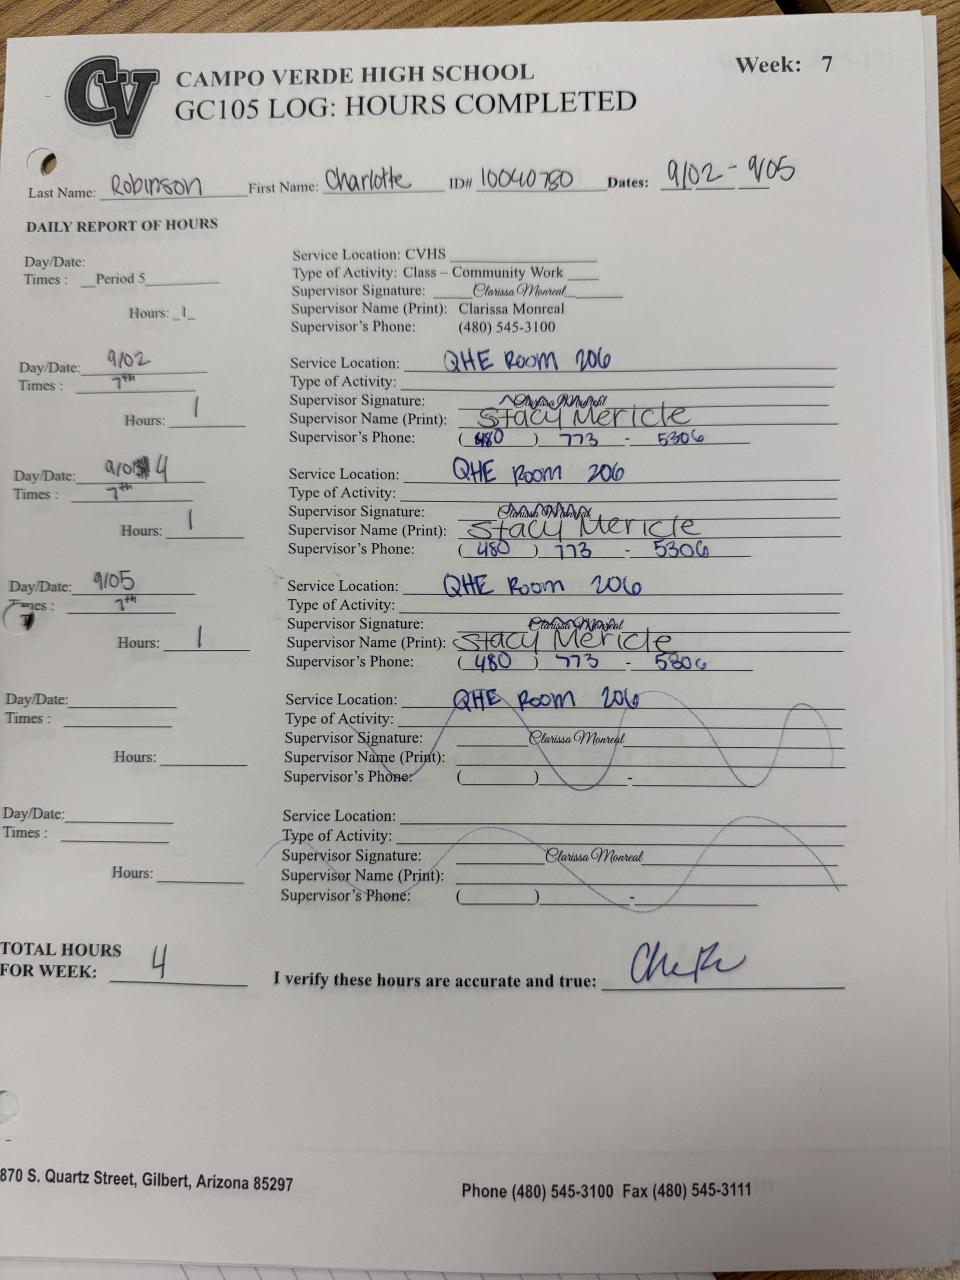 CV
CAMPO VERDE HIGH SCHOOL
Week: 7
GC105 LOG: HOURS COMPLETED
Last Name: Robinson First Name: Charlotte ID# 10040780 Dates: 9/02 - 9/05
DAILY REPORT OF HOURS
Day/Date:
Times : Period 5
Hours: 1
Service Location: CVHS
Type of Activity: Class – Community Work
Supervisor Signature: Clarissa Monreal
Supervisor Name (Print): Clarissa Monreal
Supervisor's Phone: (480) 545-3100
Day/Date: 9/02
Times : 7th
Hours: 1
Service Location: QHE Room 206
Type of Activity:
Supervisor Signature: Clarissa Monreal
Supervisor Name (Print): Stacy Mericle
Supervisor's Phone: (480) 773 - 5306
Day/Date: 9/04
Times : 7th
Hours: 1
Service Location: QHE Room 206
Type of Activity:
Supervisor Signature: Clarissa Monreal
Supervisor Name (Print): Stacy Mericle
Supervisor's Phone: (480) 773 - 5306
Day/Date: 9/05
Times : 7th
Hours: 1
Service Location: QHE Room 206
Type of Activity:
Supervisor Signature: Clarissa Monreal
Supervisor Name (Print): Stacy Mericle
Supervisor's Phone: (480) 773 - 5306
Day/Date:
Times :
Hours:
Service Location: QHE Room 206
Type of Activity:
Supervisor Signature: Clarissa Monreal
Supervisor Name (Print):
Supervisor's Phone: ( ) -
Day/Date:
Times :
Hours:
Service Location:
Type of Activity:
Supervisor Signature: Clarissa Monreal
Supervisor Name (Print):
Supervisor's Phone: ( ) -
TOTAL HOURS
FOR WEEK: 4
I verify these hours are accurate and true:
870 S. Quartz Street, Gilbert, Arizona 85297
Phone (480) 545-3100 Fax (480) 545-3111